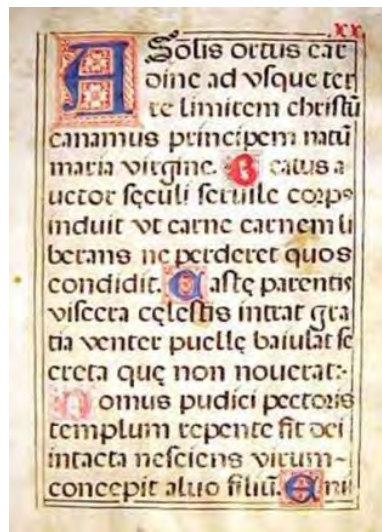 XX
A Solis ortus car
dine ad vsque ter
re limitem christū
canamus principem natū
maria virgine. Beatus a
uctor sęculi seruile corps
induit vt carne carnem li
berans ne perderet quos
condidit. Castę parentis
viscera cęlestis intrat gra
tia venter puellę baiulat se
creta quę non nouerat:
Domus pudici pectoris
templum repente fit dei
intacta nesciens virum
concepit aluo filiū. Eni